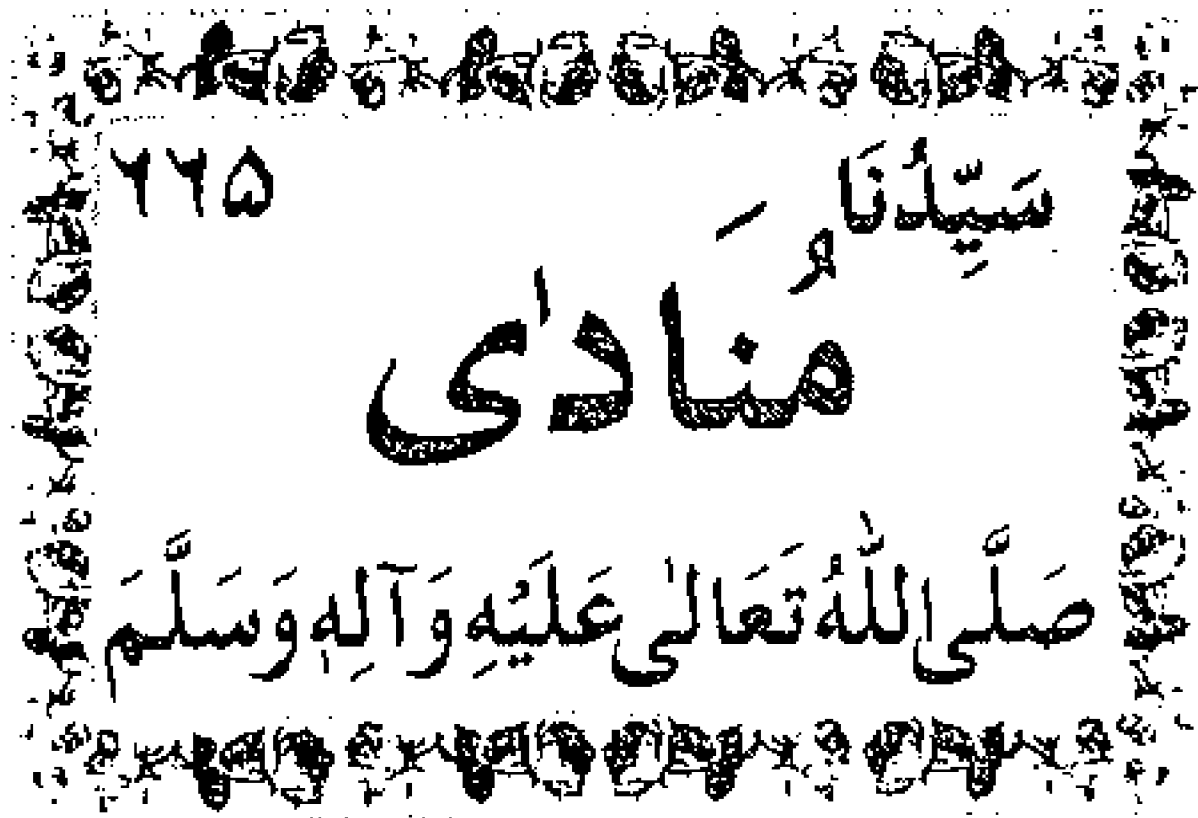 سَيِّدُنَا ۲۲۵
مُنَادٰى
صَلَّى اللّٰهُ تَعَالٰى عَلَيْهِ وَآلِهٖ وَسَلَّمَ